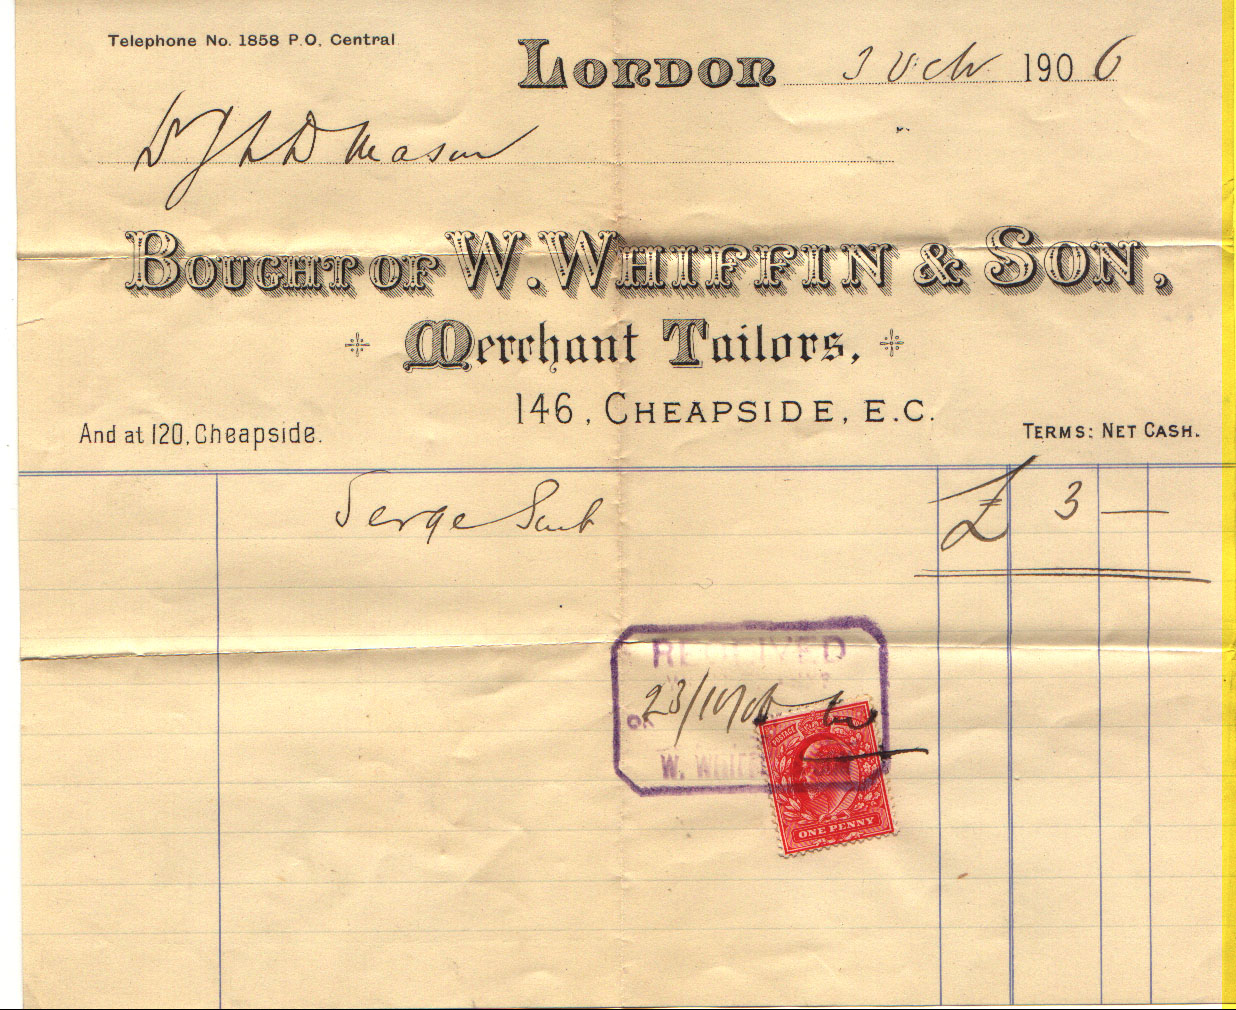 Telephone No. 1858 P.O. Central
London 3 Octr 1906
Mason
Bought of W. Whiffin & Son,
Merchant Tailors,
146, Cheapside, E.C.
And at 120, Cheapside.
Terms: Net Cash.
Serge Suit £ 3 —
RECEIVED
23/10/06
W. WHIFF
POSTAGE
ONE PENNY